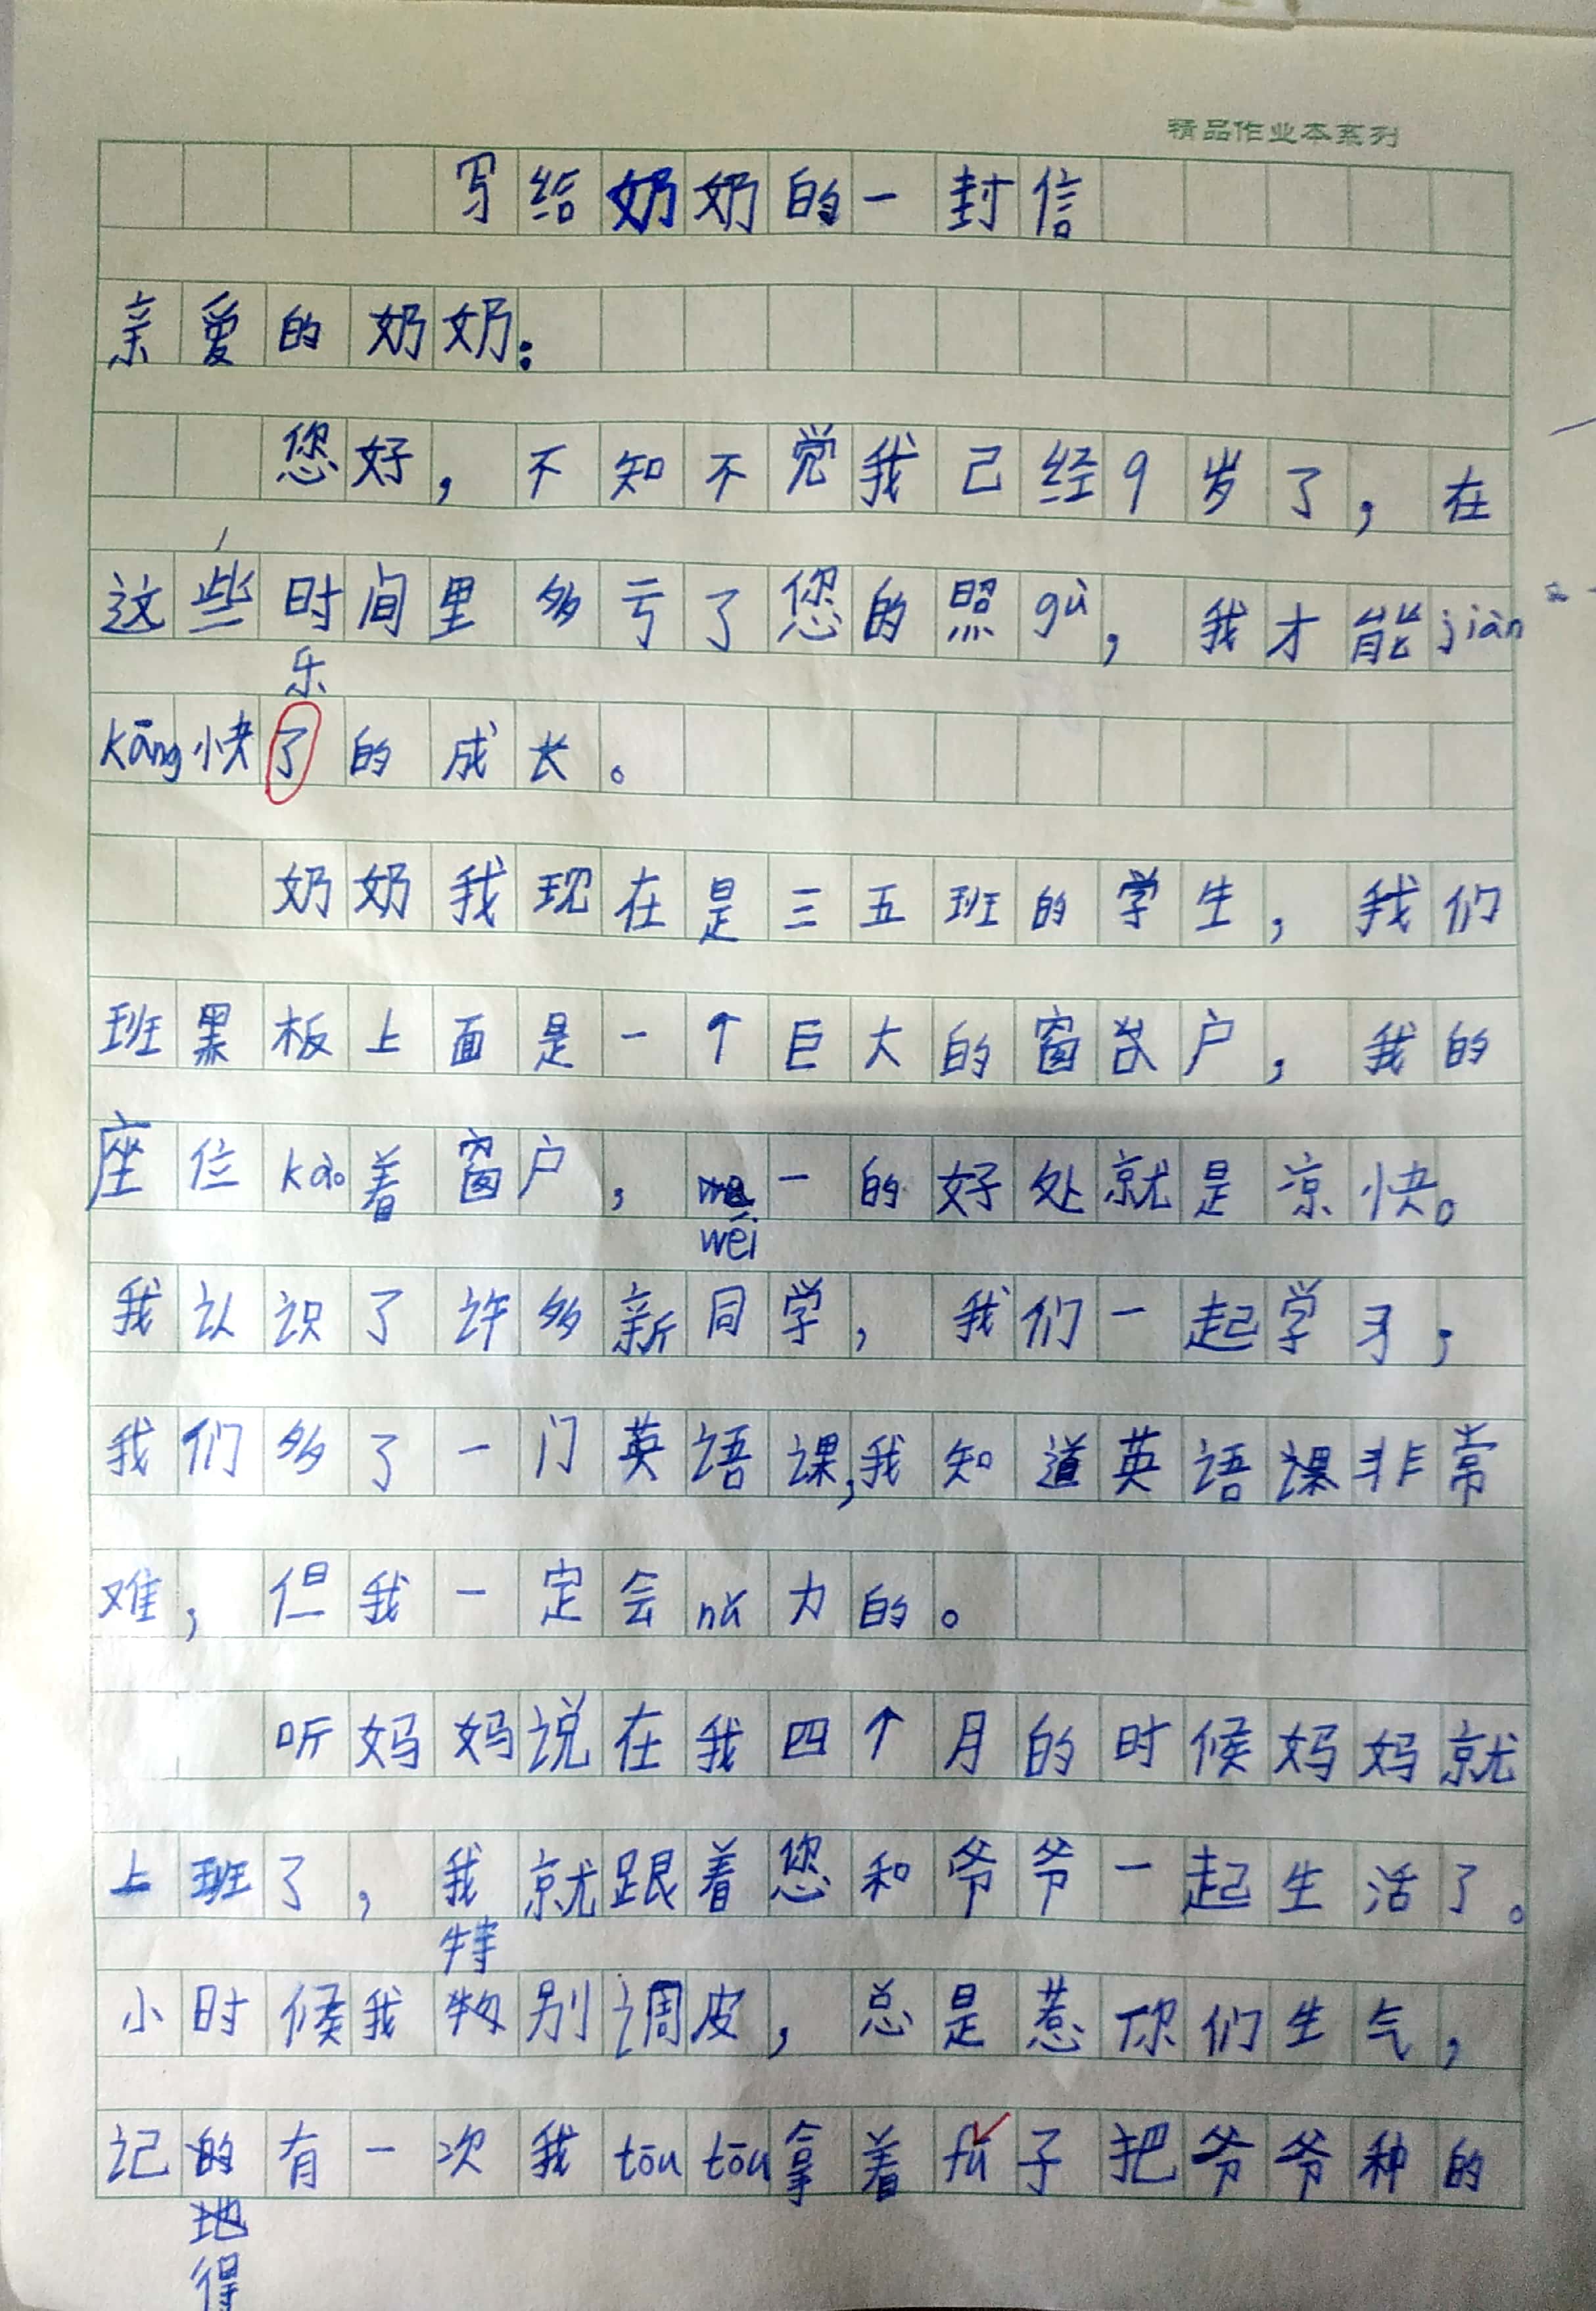 精品作业本系列
写给奶奶的一封信
亲爱的奶奶:
您好,不知不觉我己经9岁了,在
这些时间里多亏了您的照gù,我才能jiàn
乐
kāng快了的成长。
奶奶我现在是三五班的学生,我们
班黑板上面是一个巨大的窗户,我的
座位kào着窗户,一的好处就是凉快。
wéi
我认识了许多新同学,我们一起学习,
我们多了一门英语课,我知道英语课非常
难,但我一定会nǔ力的。
听妈妈说在我四个月的时候妈妈就
上班了,我就跟着您和爷爷一起生活了。
特
小时候我物别调皮,总是惹你们生气,
记的有一次我tōu tōu拿着fǔ子把爷爷种的
地
得